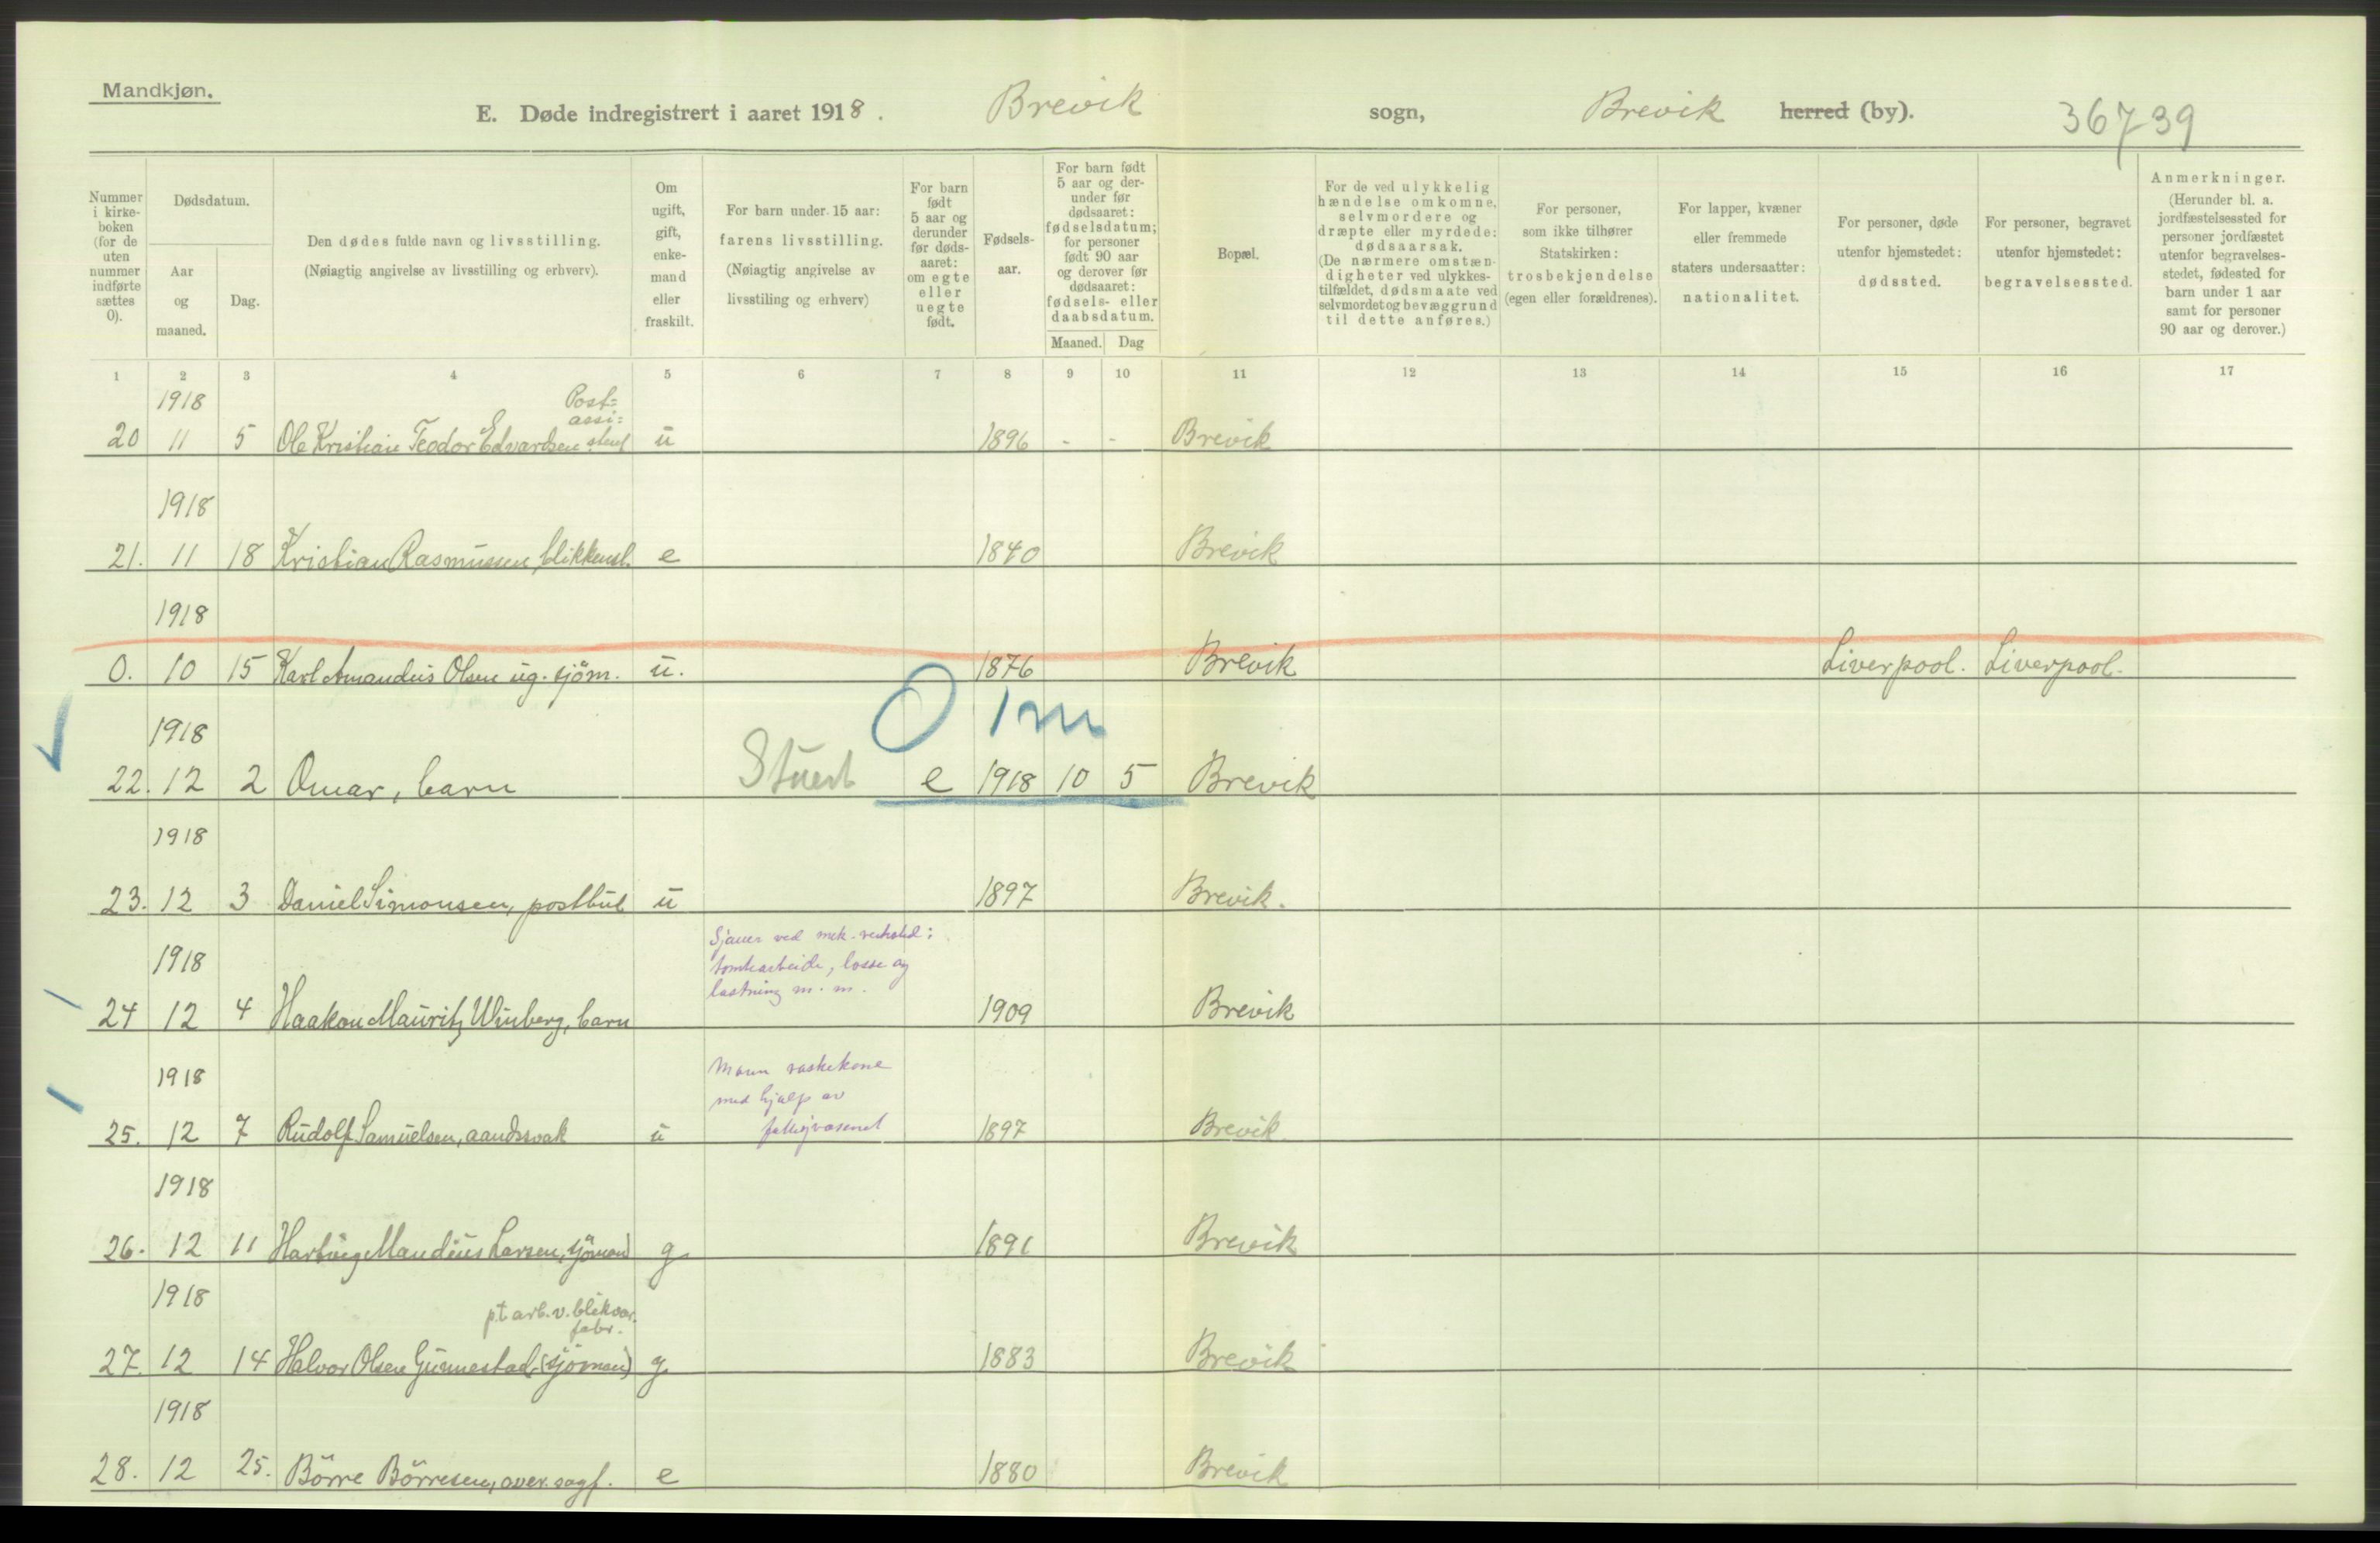 Mandkjøn.
E. Døde indregistrert i aaret 1918. Brevik sogn, Brevik herred (by). 36739
Nummer i kirke-boken (for de uten nummer indførte sættes 0).
Dødsdatum.
Aar og maaned.
Dag.
Den dødes fulde navn og livsstilling.
(Nøiagtig angivelse av livsstilling og erhverv).
Om ugift, gift, enkemand eller fraskilt.
For barn under 15 aar:
farens livsstilling.
(Nøiagtig angivelse av
livsstiling og erhverv)
For barn født 5 aar og derunder før døds-aaret: om egte eller uegte født.
Fødsels-aar.
For barn født 5 aar og der-under før dødsaaret: fødselsdatum; for personer født 90 aar og derover før dødsaaret: fødsels- eller daabsdatum.
Maaned. Dag
Bopæl.
For de ved ulykkelig hændelse omkomne, selvmordere og dræpte eller myrdede: dødsaarsak.
(De nærmere omstæn-digheter ved ulykkes-tilfældet, dødsmaate ved selvmordet og bevæggrund til dette anføres.)
For personer, som ikke tilhører Statskirken: trosbekjendelse (egen eller forældrenes).
For lapper, kvæner eller fremmede staters undersaatter: nationalitet.
For personer, døde utenfor hjemstedet: dødssted.
For personer, begravet utenfor hjemstedet: begravelsessted.
Anmerkninger.
(Herunder bl. a. jordfæstelsessted for personer jordfæstet utenfor begravelses-stedet, fødested for barn under 1 aar samt for personer 90 aar og derover.)
1 2 3 4 5 6 7 8 9 10 11 12 13 14 15 16 17
1918 Post=
assi=
20 11 5 Ole Kristian Teodor Edvardsen stent u 1896 - - Brevik
1918
21. 11 18 Kristian Rasmussen, blikkensl. e 1840 Brevik
1918
0. 10 15 Karl Amandus Olsen ug. sjöm. u. 1876 Brevik Liverpool. Liverpool.
1918 0 1 m
22. 12 2 Omar, barn Stuert e 1918 10 5 Brevik
1918
23. 12 3 Daniel Simonsen, postbud u 1897 Brevik.
Sjauer ved mek. verksted:
1918 tomtearbeide, losse og
lastning m. m.
24 12 4 Haakon Mauritz Winberg, barn 1909 Brevik
1918 Moren vaskekone
med hjælp av
fattigvæsenet
25. 12 7 Rudolf Samuelsen, aandssvak u 1897 Brevik
1918
26. 12 11 Hartvig Mandius Larsen, sjömand g. 1891 Brevik
1918 p.t arb. v. blikvar.
fabr.
27. 12 14 Halvor Olsen Gunnestad (sjöman) g. 1883 Brevik
1918
28. 12 25. Börre Börresen, overr. sagf. e 1880 Brevik